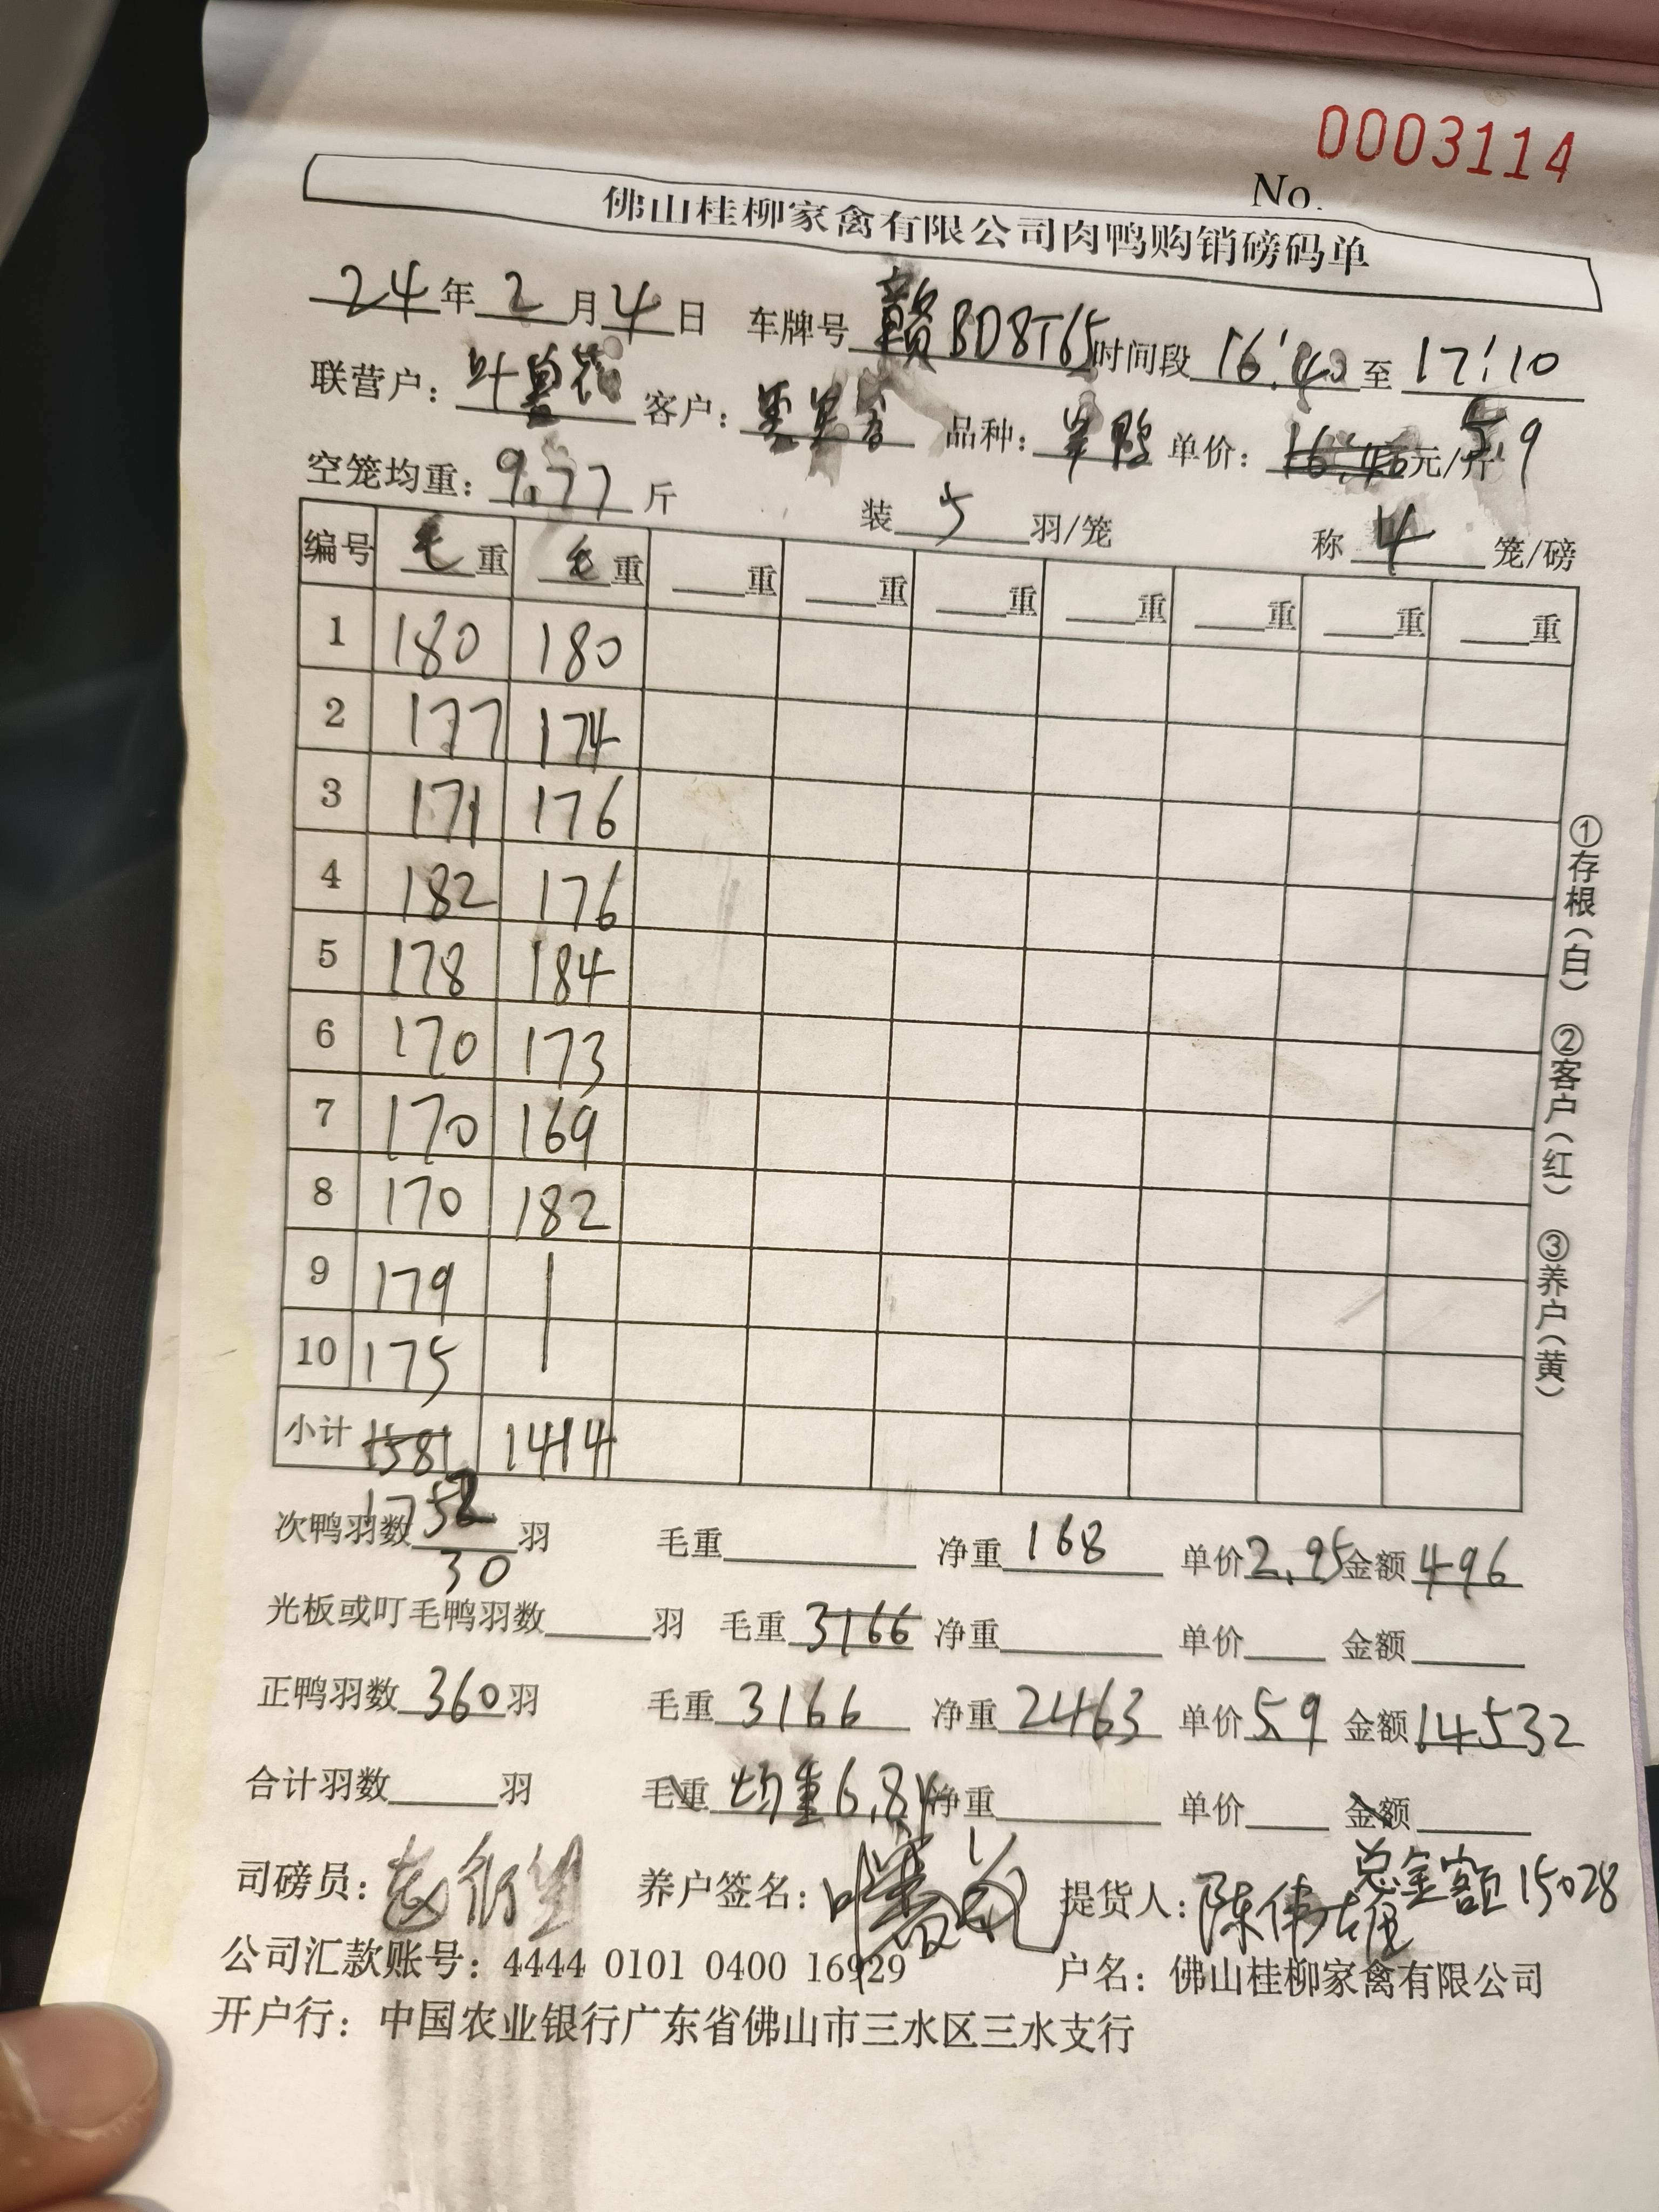 0003114
No.
佛山桂柳家禽有限公司肉鸭购销磅码单
24年2月4日 车牌号赣BD8T65时间段16:40至17:10
联营户: 叶 客户: 品种: 鸭 单价: 元/斤 5.9
空笼均重: 9.77斤 装5羽/笼 称4笼/磅
编号 毛重 毛重 重 重 重 重 重 重 重
1 180 180
2 177 174
3 171 176
4 182 176
5 178 184
6 170 173
7 170 169
8 170 182
9 179
10 175
小计 1581 1414
1752
次鸭羽数30羽 毛重 净重168 单价2.95金额496
光板或叮毛鸭羽数 羽 毛重3166 净重 单价 金额
正鸭羽数360羽 毛重3166 净重2463 单价5.9 金额14532
合计羽数 羽 毛重 均重6.84 净重 单价 金额
总金额15028
司磅员: 养户签名: 叶 提货人: 陈伟雄
公司汇款账号: 4444 0101 0400 16929 户名: 佛山桂柳家禽有限公司
开户行: 中国农业银行广东省佛山市三水区三水支行
①存根(白) ②客户(红) ③养户(黄)